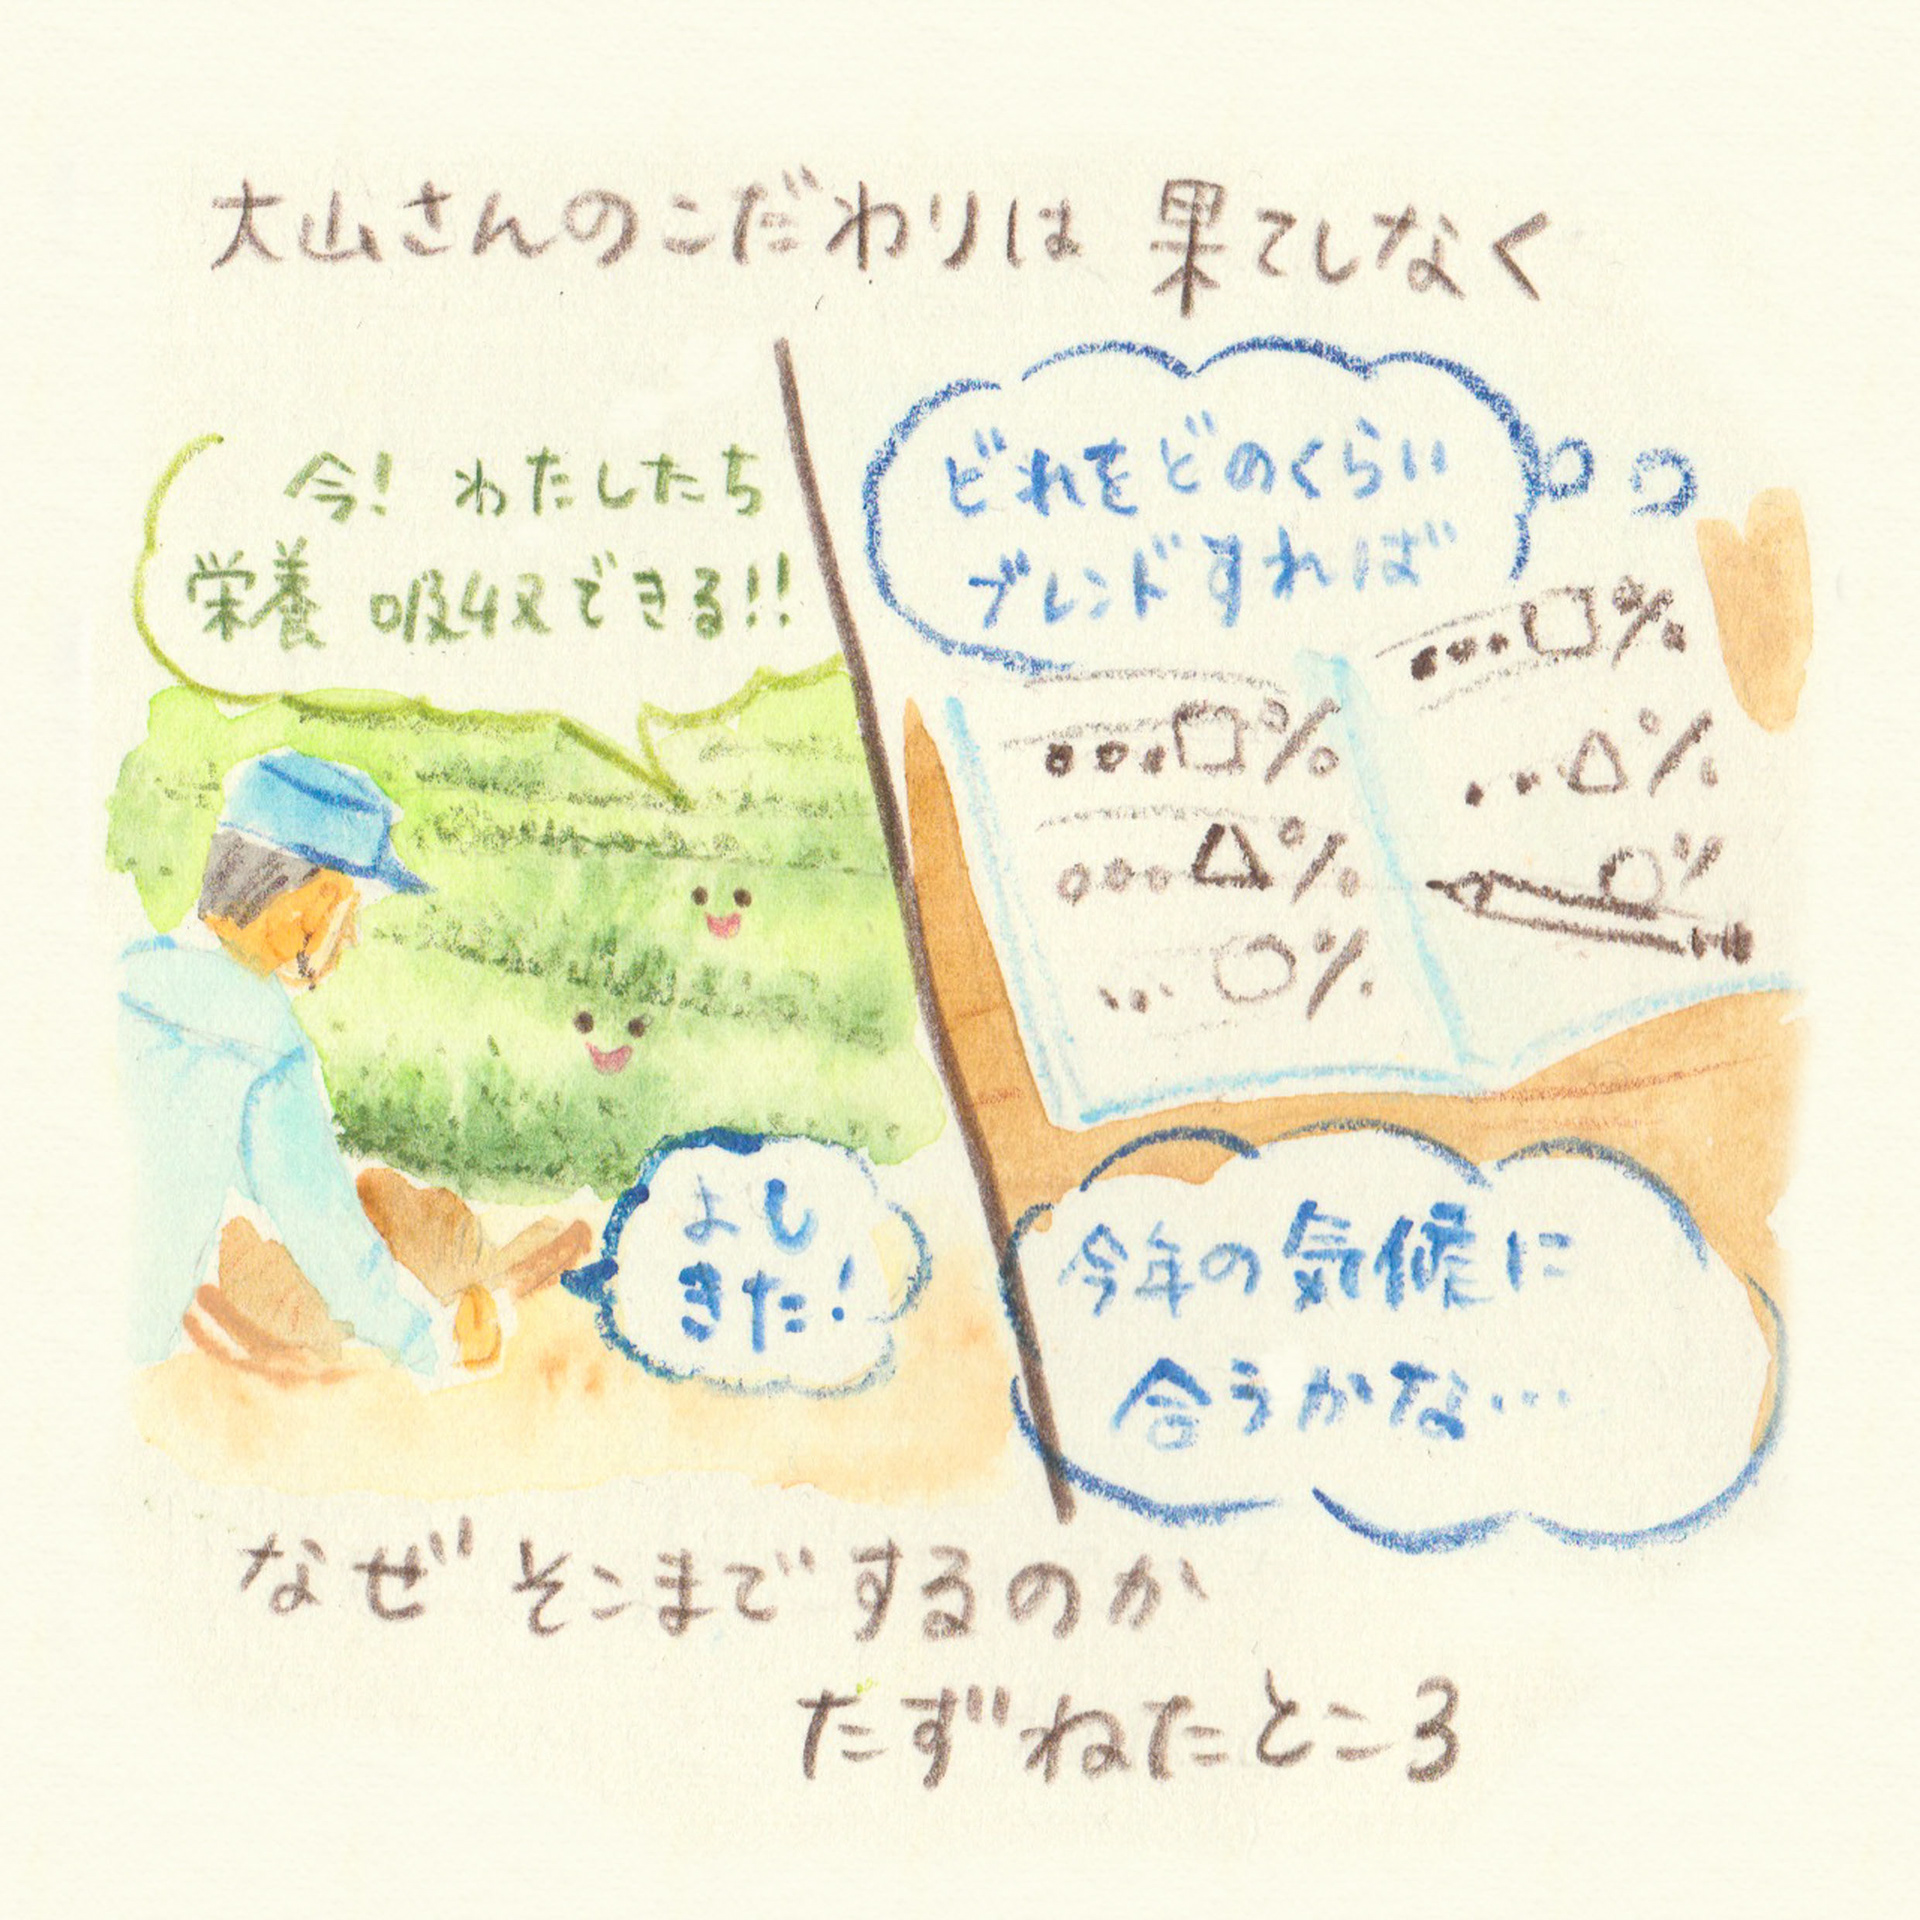 大山さんのこだわりは 果てしなく
今! わたしたち
栄養 吸収できる!!
よし
きた!
どれをどのくらい
ブレンドすれば
...□%
...△%
...○%
...□%
...△%
○%
今年の気候に
合うかな...
なぜ そこまで するのか
たずねたところ